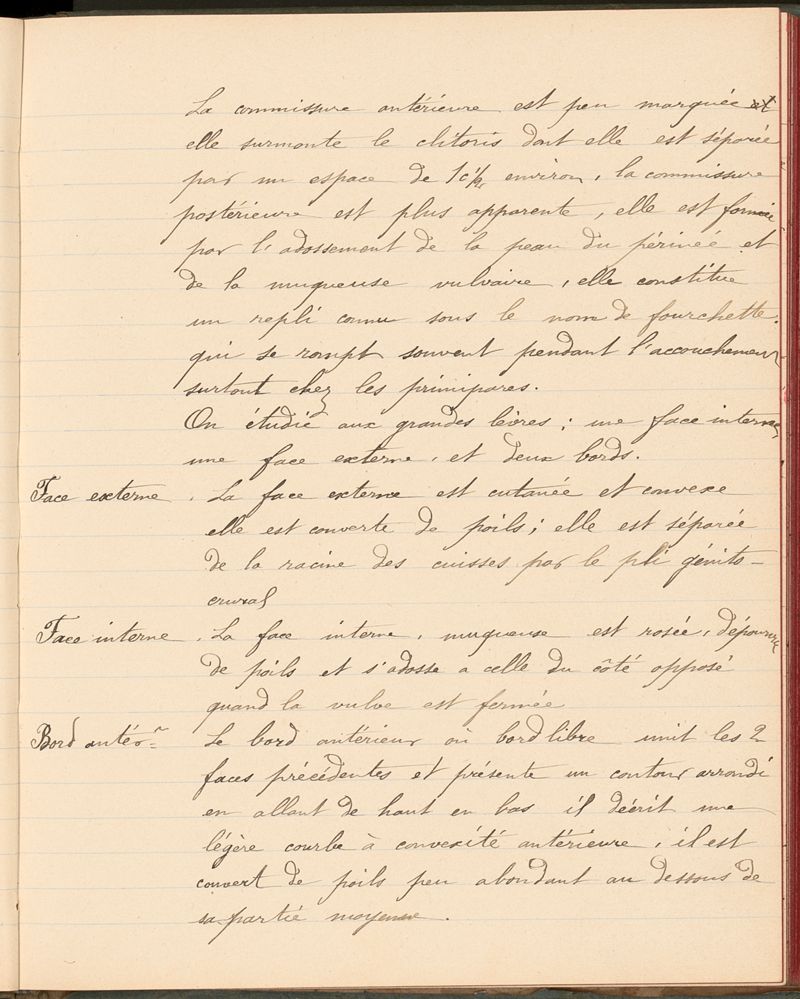 La commissure antérieure est peu marquée et
elle surmonte le clitoris dont elle est séparée
par un espace de 1c ½ environ, la commissure
postérieure est plus apparente, elle est formée
par l'adossement de la peau du périnée et
de la muqueuse vulvaire, elle constitue
un repli connu sous le nom de fourchette.
qui se rompt souvent pendant l'accouchement
surtout chez les primipares.
On étudie aux grandes lèvres ; une face interne
une face externe, et deux bords.
Face externe . La face externe est cutanée et convexe
elle est couverte de poils ; elle est séparée
de la racine des cuisses par le pli génito-
crural
Face interne . La face interne, muqueuse est rosée, dépourvue
de poils et s'adosse a celle du côté opposé
quand la vulve est fermée
Bord antér.r Le bord antérieur où bord libre unit les 2
faces précédentes et présente un contour arrondi
en allant de haut en bas il décrit une
légère courbe à convexité antérieure, il est
couvert de poils peu abondant au dessous de
sa partie moyenne.